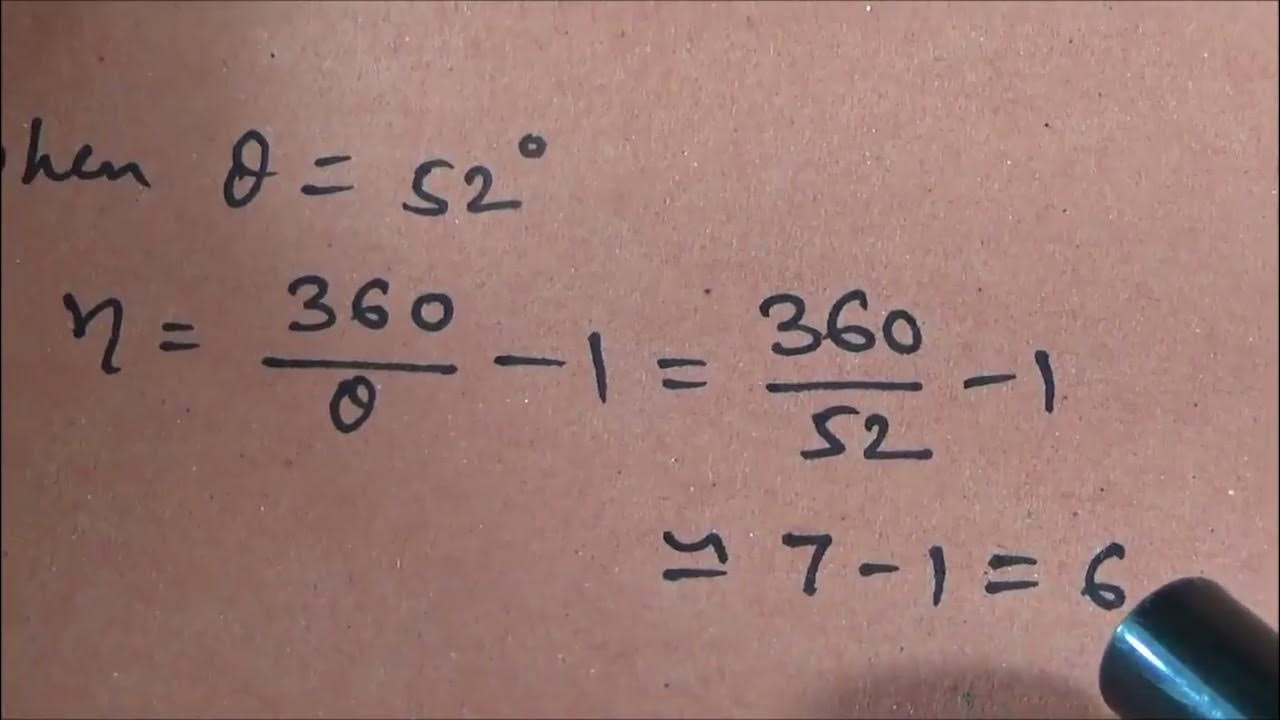 hen θ = 52°
n = 360/θ - 1 = 360/52 - 1
≃ 7 - 1 = 6